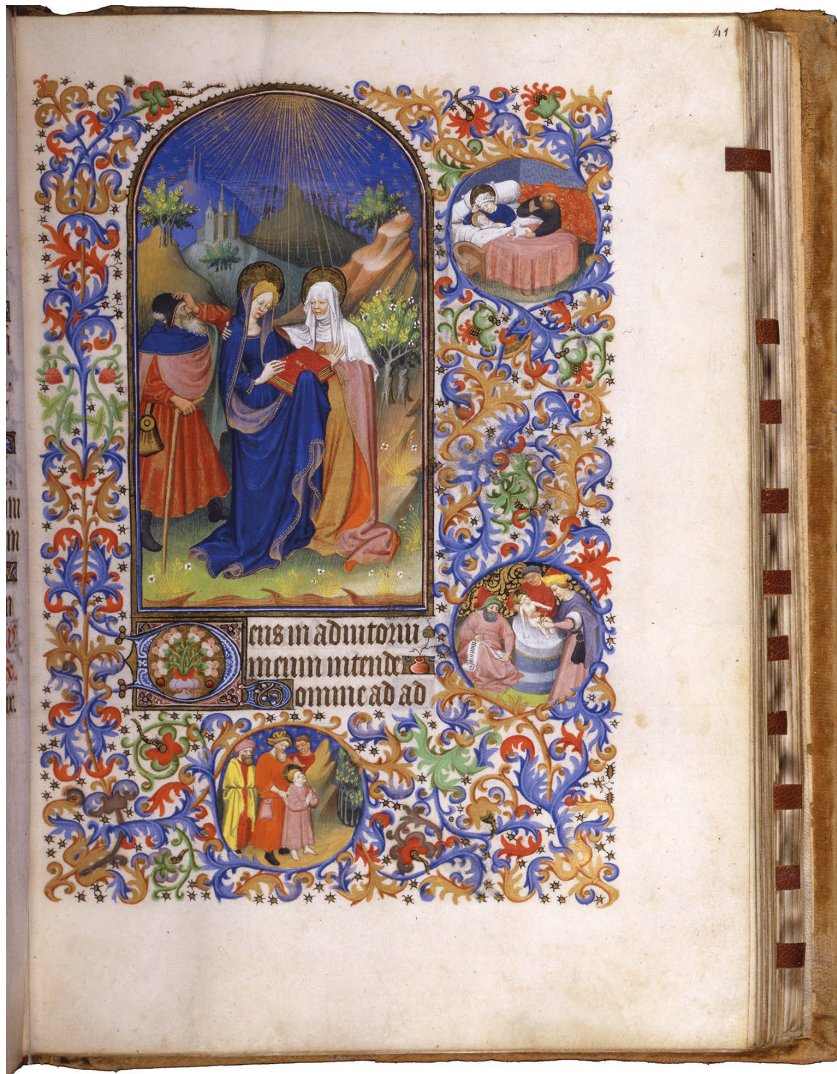 41
eus in adiutoriu
meum intende
omine ad ad